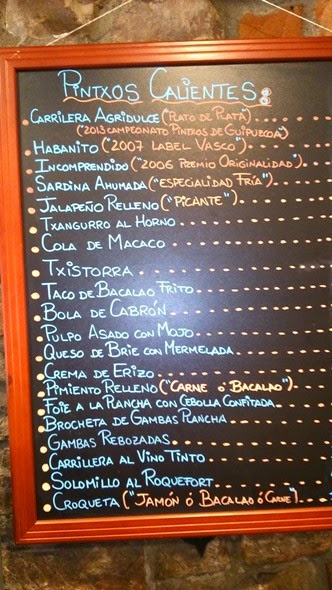 PINTXOS CALIENTES:
CARRILERA AGRIDULCE ("PLATO DE PLATA")
("2013 CAMPEONATO PINTXOS DE GUIPUZCOA")
HABANITO ("2007 LABEL VASCO")
INCOMPRENDIDO ("2006 PREMIO ORIGINALIDAD")
SARDINA AHUMADA ("ESPECIALIDAD FRÍA")
JALAPEÑO RELLENO ("PICANTE")
TXANGURRO AL HORNO
COLA DE MACACO
TXISTORRA
TACO DE BACALAO FRITO
BOLA DE CABRÓN
PULPO ASADO CON MOJO
QUESO DE BRIE CON MERMELADA
CREMA DE ERIZO
PIMIENTO RELLENO ("CARNE Ó BACALAO")
FOIE A LA PLANCHA CON CEBOLLA CONFITADA
BROCHETA DE GAMBAS PLANCHA
GAMBAS REBOZADAS
CARRILLERA AL VINO TINTO
SOLOMILLO AL ROQUEFORT
CROQUETA ("JAMÓN Ó BACALAO Ó CARNE")